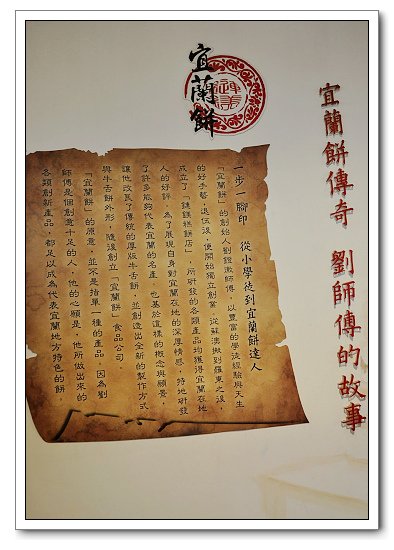 宜蘭餅傳奇 劉師傅的故事
宜蘭餅
一步一腳印 從小學徒到宜蘭餅達人
「宜蘭餅」的創始人劉鎧徽師傅，以豐富的學徒經驗與天生
的好手藝，退伍後，便開始獨立創業，從蘇澳搬到羅東之後，
成立了「鎂鎂糕餅店」，所研發的各類產品均獲得宜蘭在地
人的好評，為了展現自身對宜蘭在地的深厚情感，特地研發
了許多能夠代表宜蘭的名產，也基於這樣的概念與願景，
讓他改良了傳統的厚版牛舌餅，並創造出全新的製作方式
與牛舌餅外形，隨後創立「宜蘭餅」食品公司。
「宜蘭餅」的原意，並不是指單一種的產品，因為劉
師傅是個創意十足的人，他的心願是，他所做出來的
各類創新產品，都足以成為代表宜蘭地方特色的餅